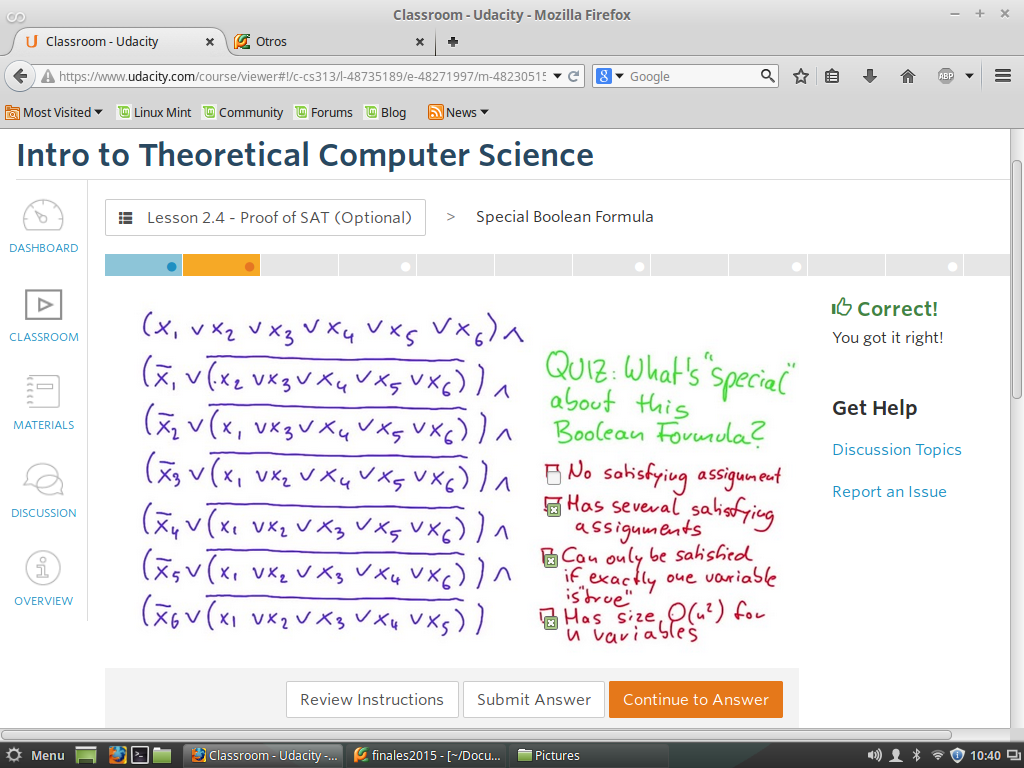 Classroom - Udacity - Mozilla Firefox
Classroom - Udacity
Otros
https://www.udacity.com/course/viewer#!/c-cs313/l-48735189/e-48271997/m-48230515
Google
ABP
Most Visited
Linux Mint
Community
Forums
Blog
News
Intro to Theoretical Computer Science
DASHBOARD
CLASSROOM
MATERIALS
DISCUSSION
OVERVIEW
Lesson 2.4 - Proof of SAT (Optional) > Special Boolean Formula
(x₁ ∨ x₂ ∨ x₃ ∨ x₄ ∨ x₅ ∨ x₆) ∧
(x̅₁ ∨ (x₂ ∨ x₃ ∨ x₄ ∨ x₅ ∨ x₆)) ∧
(x̅₂ ∨ (x₁ ∨ x₃ ∨ x₄ ∨ x₅ ∨ x₆)) ∧
(x̅₃ ∨ (x₁ ∨ x₂ ∨ x₄ ∨ x₅ ∨ x₆)) ∧
(x̅₄ ∨ (x₁ ∨ x₂ ∨ x₃ ∨ x₅ ∨ x₆)) ∧
(x̅₅ ∨ (x₁ ∨ x₂ ∨ x₃ ∨ x₄ ∨ x₆)) ∧
(x̅₆ ∨ (x₁ ∨ x₂ ∨ x₃ ∨ x₄ ∨ x₅))
QUIZ: What's "special"
about this
Boolean Formula?
No satisfying assignment
Has several satisfying
assignments
Can only be satisfied
if exactly one variable
is "true"
Has size O(n²) for
n variables
Correct!
You got it right!
Get Help
Discussion Topics
Report an Issue
Review Instructions
Submit Answer
Continue to Answer
Menu
Classroom - Udacity -...
finales2015 - [~/Docu...
Pictures
10:40